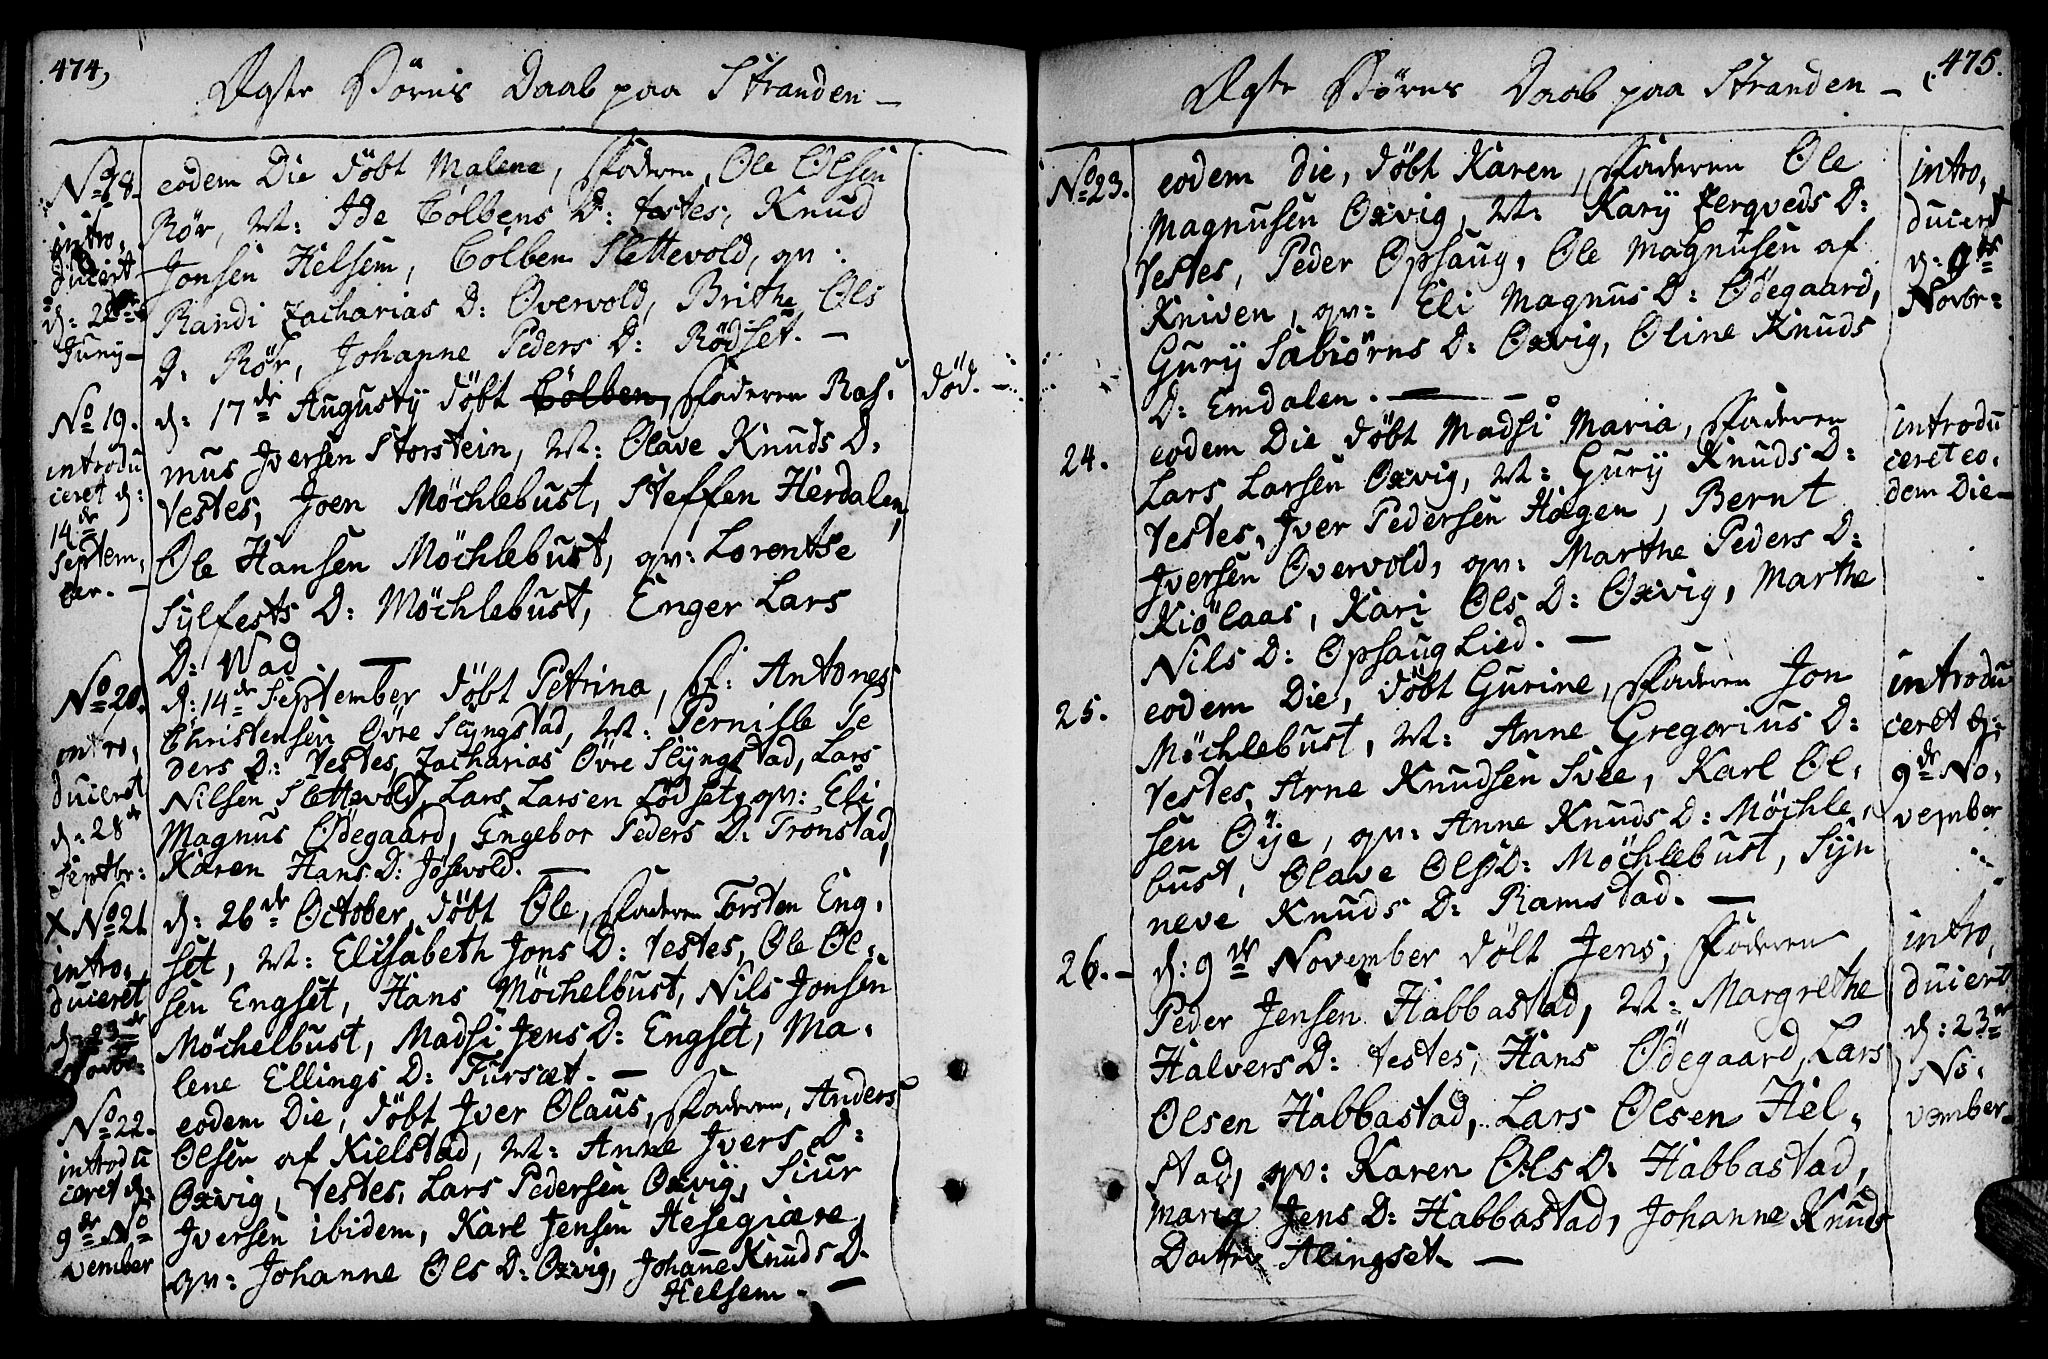 474,
Ægte Børns Daab paa Stranden -
No 18.
intro,
ducert
d: 22de
Juny -
eodem Die döbt Malene, Faderen, Ole Olsen
Rör, M: Ide Colbens D: testes, Knud
Jonsen Helsem, Colben Slettevold, qv:
Randi Zacharias D: Overvold, Brithe Ols
D: Rör, Johanne Peders D: Rödset. -
No 19.
introdu
ceret d:
14de
Septem,
ber. -
d: 17de Augusty döbt Cölben, Faderen Ras,
död. -
mus Iversen Storstein, M: Olave Knuds D:
Testes, Joen Möchlebust, Steffen Herdalen,
Ole Hansen Möchlebust, qv: Lorentse
Sylfests D: Möchlebust, Enger Lars
D: Wad. -
No 20.
intro,
duceret
d: 28de
Septbr:
d: 14de September döbt Petrina, F: Antones
Christensen Övre Slyngstad, M: Pernille Pe
ders D: Testes, Zacharias Övre Slyngstad, Lars
Nilsen Slettevold, Lars Larsen Lödset, qv: Eli
Magnus Ödegaard, Engebor Peders D: Tronstad,
Karen Hans D: Jösevold. -
X No 21
intro,
duceret
d: 23de
Novbr:
d: 26de October, döbt Ole, Faderen Torsten Eng,
set, M: Elisabeth Jons D: testes, Ole Ol,
sen Engset, Hans Möchelbust, Nils Jonsen
Möchelbust, Madsi Jens D: Engset, Ma,
lene Ellings D: Fursæt. -
No 22.
introdu
ceret d:
9de No
vember
eodem Die, döbt Iver Olaus, Faderen, Anders
Olsen af Kielstad, M: Anne Ivers D:
Oxvig, Testes, Lars Pedersen Oxvig, Siur
Iversen ibidem, Karl Jensen Hesegiære,
qv: Johanne Ols D: Oxvig, Johanne Knuds D.
Helsem. -
475.
Ægte Börns Daab paa Stranden -
No 23.
eodem Die, döbt Karen, Faderen Ole
Magnusen Oxvig, M: Kary Zergveds D:
Testes, Peder Opsaug, Ole Magnusen af
Kniven, qv: Eli Magnus D: Ödegaard,
Gury Sabiörns D: Oxvig, Oline Knuds
D: Emdalen. -
intro,
ducert
d: 9de
Novbr:
24.
eodem Die döbt Madsi Maria, Faderen
Lars Larsen Oxvig, M: Gury Knuds D:
Testes, Iver Pedersen Hagen, Bernt
Iversen Overvold, qv: Marthe Peders D:
Kiölaas, Kari Ols D: Oxvig, Marthe
Nils D: Opsaug Lied. -
introdu
ceret eo,
dem Die -
25.
eodem Die, döbt Gurine, Faderen Jon
Möchlebust, M: Anne Gregorius D:
Testes, Arne Knudsen Svee, Karl Ol,
sen Öye, qv: Anne Knuds D: Möchle,
bust, Olave Ols D: Möchlebust, Syn
neve Knuds D: Ramstad. -
introdu
ceret d:
9de No,
vember
26. -
d: 9de November döbt Jens, Faderen
Peder Jensen Habbastad, M: Margrethe
Halvers D: testes, Hans Ödegaard, Lars
Olsen Habbastad, Lars Olsen Hel,
stad, qv: Karen Ols D: Habbastad,
Marig Jens D: Habbastad, Johanne Knuds
Datter Alingset -
intro,
ducert
d: 23de
No,
vember -